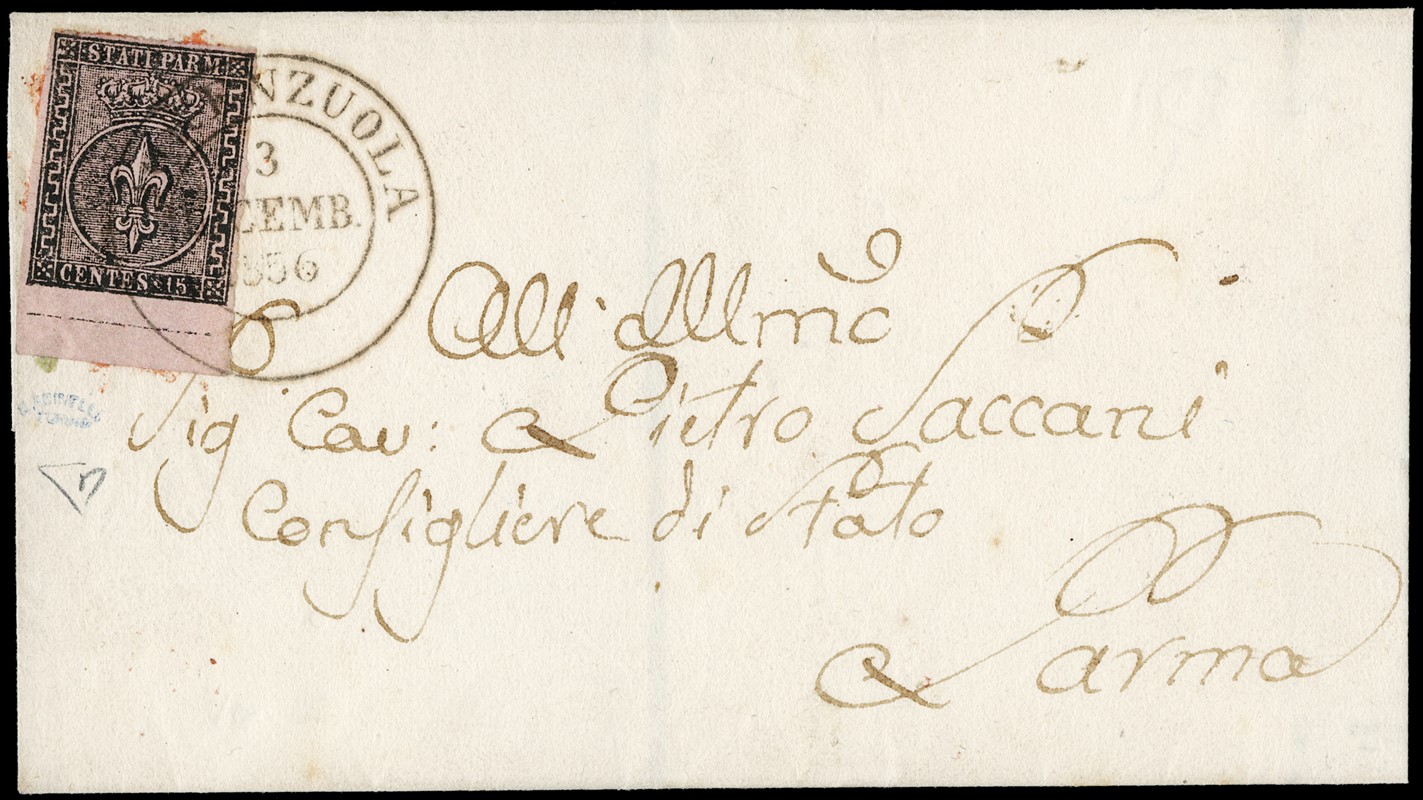 STATI PARM
CENTES. 15
NZUOLA
3
CEMB.
All' Illmo
Sig Cav: Pietro Saccani
Consigliere di Stato
Parma